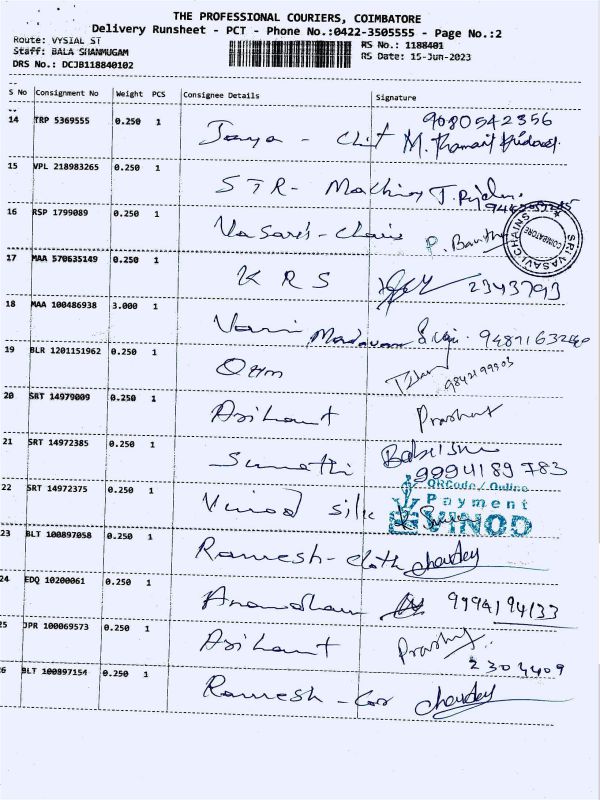 THE PROFESSIONAL COURIERS, COIMBATORE
Delivery Runsheet - PCT - Phone No.:0422-3505555 - Page No.:2
Route: VYSIAL ST
Staff: BALA SHANMUGAM
DRS No.: DCJB118840102
RS No.: 1188401
RS Date: 15-Jun-2023
S No Consignment No Weight PCS Consignee Details Signature
14 TRP 5369555 0.250 1 Jaya - Chit 9080542356
M.
15 VPL 218983265 0.250 1 STR -
16 RSP 1799089 0.250 1 P.
SRI VASAVI CHAINS
COIMBATORE
17 MAA 570635149 0.250 1 KRS 2343793
18 MAA 100486938 3.000 1
19 BLR 1201151962 0.250 1 Om 9842199903
20 SRT 14979009 0.250 1 Arihant Prashant
21 SRT 14972385 0.250 1 Sumathi
9994189783
22 SRT 14972375 0.250 1 Vinod Silk
QRCode / Online
Payment
VINOD
23 BLT 100897058 0.250 1 Ramesh - Cloth
24 EDQ 10200061 0.250 1 9994194133
25 JPR 100069573 0.250 1 Arihant
2302409
26 BLT 100897154 0.250 1 Ramesh -